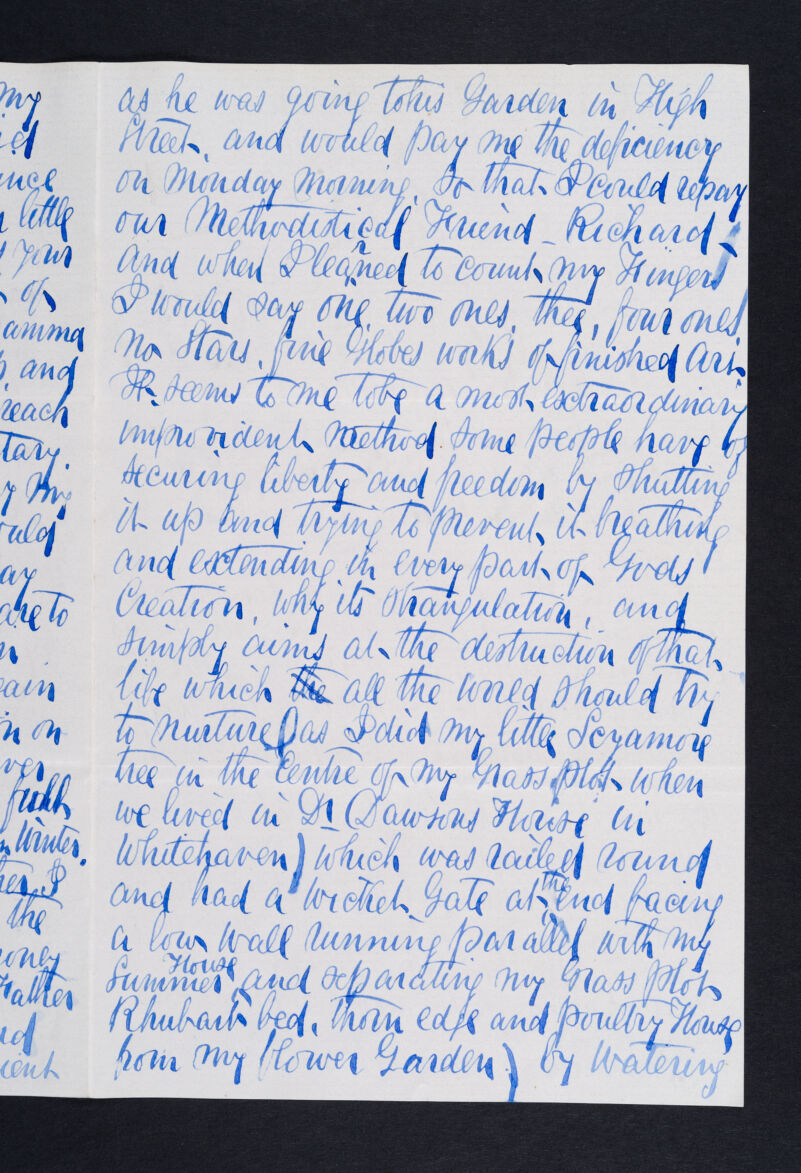 my
ince
little
your
of
amma
and
reach
tary.
my
ould
ay
are to
ain
in on
full
Winter.
the
oney
Father
as he was going tohis Garden in High
Street, and would pay me the deficiency
on Monday morning, So that I could repay
our Methodistical Friend - Richard -
and when I leaned to count my Fingers
I would say one, two ones, thee, four ones
no Stars, fine Globes works of finished Art.
It seems to me tobe a most extraordinary
improvident method some people have of
securing liberty and freedom by shutting
it up and trying to prevent it breathing
and extending in every part of Gods
Creation, why its strangulation, and
simply aims at the destruction of that
life which the all the world should try
to nurture (as I did my little Scyamore
tree in the Centre of my Grass plot when
we lived in Dr Dawsons House in
Whitehaven) which was railed round
and had a wicket Gate at the end facing
a low wall running parallel with my
Summer House and separating my Grass plot
Rhubarb bed, thorn edge and Poultry House
from my flower Garden) by Watering